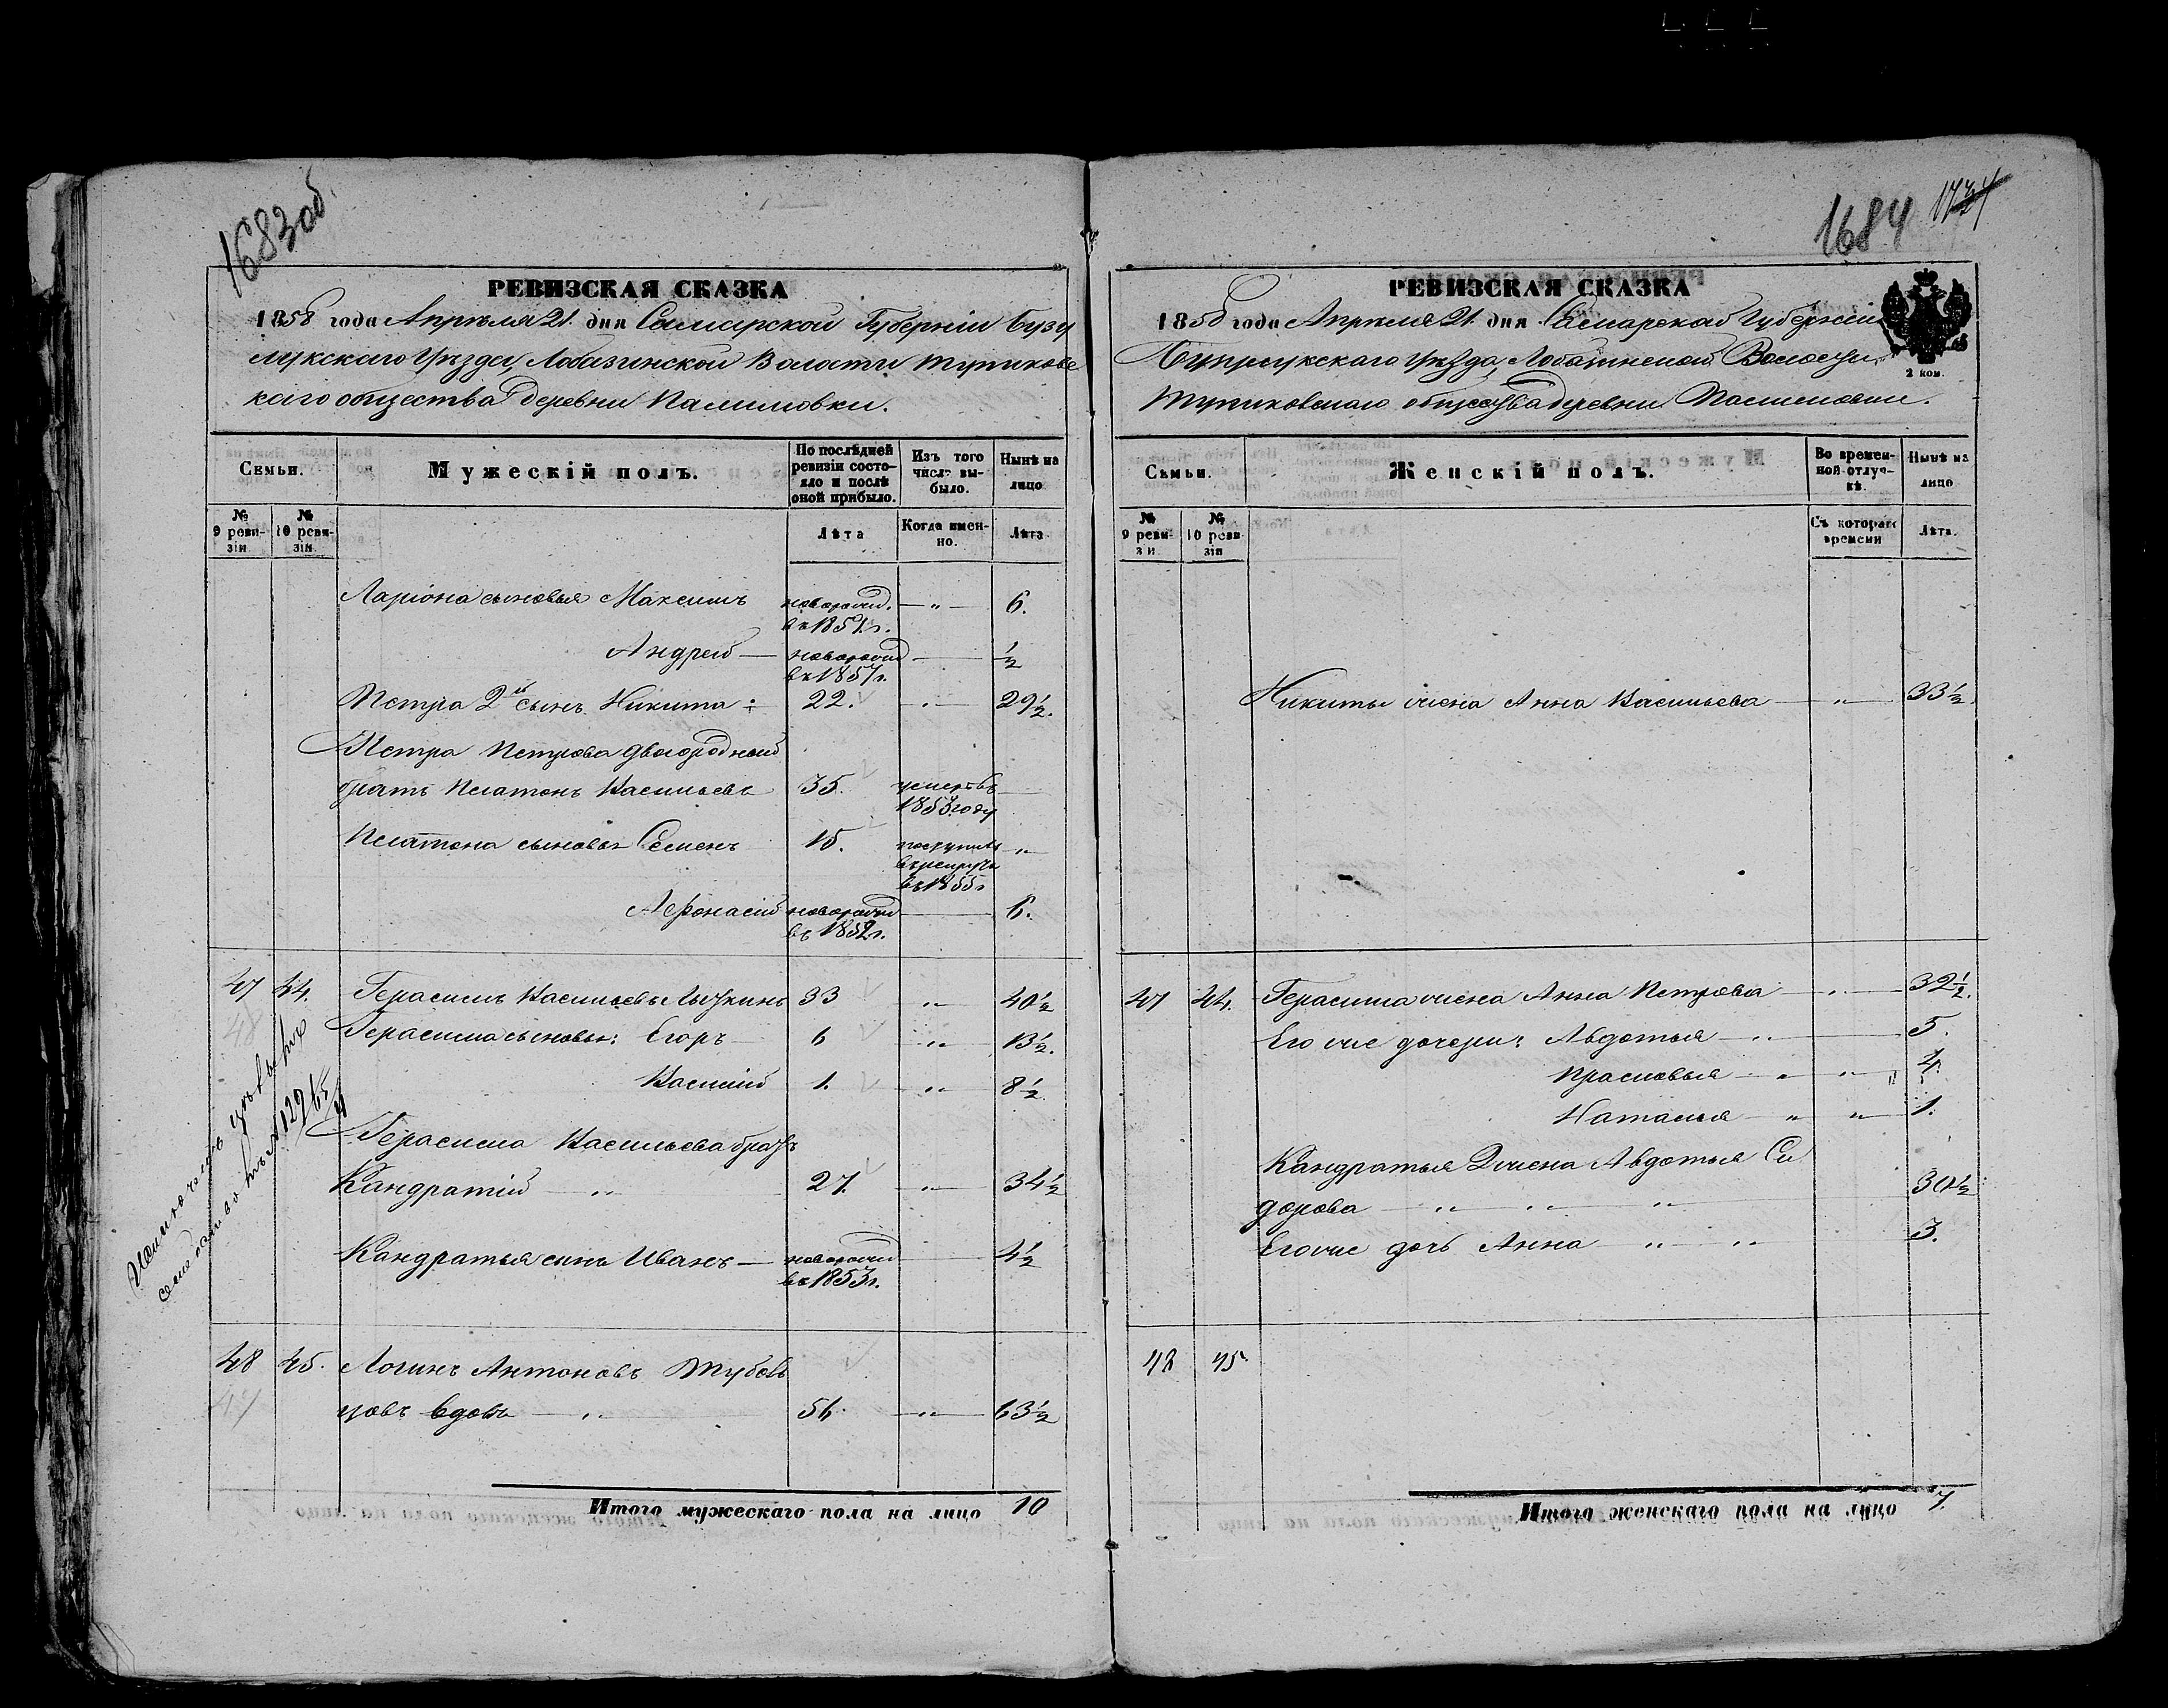 1683 об.
РЕВИЗСКАЯ СКАЗКА
1858 года Апреля 21 дня Самарской Губерніи Бузу
лукскаго Уезда, Лобазинской Волости
каго общества деревни Палимовки.
Семьи.
Мужескій полъ.
По последней ревизіи состояло и после оной прибыло.
Изъ того числа выбыло.
Ныне на лицо
№ 9 ревизіи
№ 10 ревизіи
Лета
Когда именно.
Лета
Ларіона сыновья Максимъ новорожд. въ 1851 г. — „ — 6.
Андрей — новорожд въ 1857 г. — ½
Петра 2й сынъ Никита 22. „ 29½.
Петра Петрова двоюродный
братъ Платонъ Васильевъ 35. умеръ въ 1853 году
Платона сыновья Семенъ 15. поступилъ въ рекруты въ 1855 г „
Афонасій новорожд въ 1852 г. — 6.
47 44. Герасимъ Васильевъ 33 „ 40½
48
Герасима сыновья: Егоръ 6 „ 13½.
Василій 1. „ 8½
Герасима Васильева братъ
Кандратій — „ 27. „ 34½
Кандратья сынъ Иванъ — новорожд въ 1853 г. — 4½
48 45. Логинъ Антоновъ
47
вдовъ — „ 56. „ 63½
Итого мужескаго пола на лицо 10
№ 129
1684
РЕВИЗСКАЯ СКАЗКА
1858 года Апреля 21 дня Самарской Губерніи
Бузулукскаго Уезда, Лобазинской Волости
общества деревни Палимовки.
2 коп.
Семьи.
Женскій полъ.
Во временной отлучке.
Ныне на лицо
№ 9 ревизіи
№ 10 ревизіи
Съ котораго времени
Лета.
Никиты жена Анна Васильева — „ — 33½.
47 44. Герасима жена Анна Петрова — „ — 32½.
Его же дочери: Авдотья — „ — 5.
Прасковья — „ „ 4.
Наталья — „ „ 1.
Кандратья 2 жена Авдотья Си
дорова — „ „ „ 30½
Его же дочь Анна — „ „ 3.
48 45
Итого женскаго пола на лицо 7.